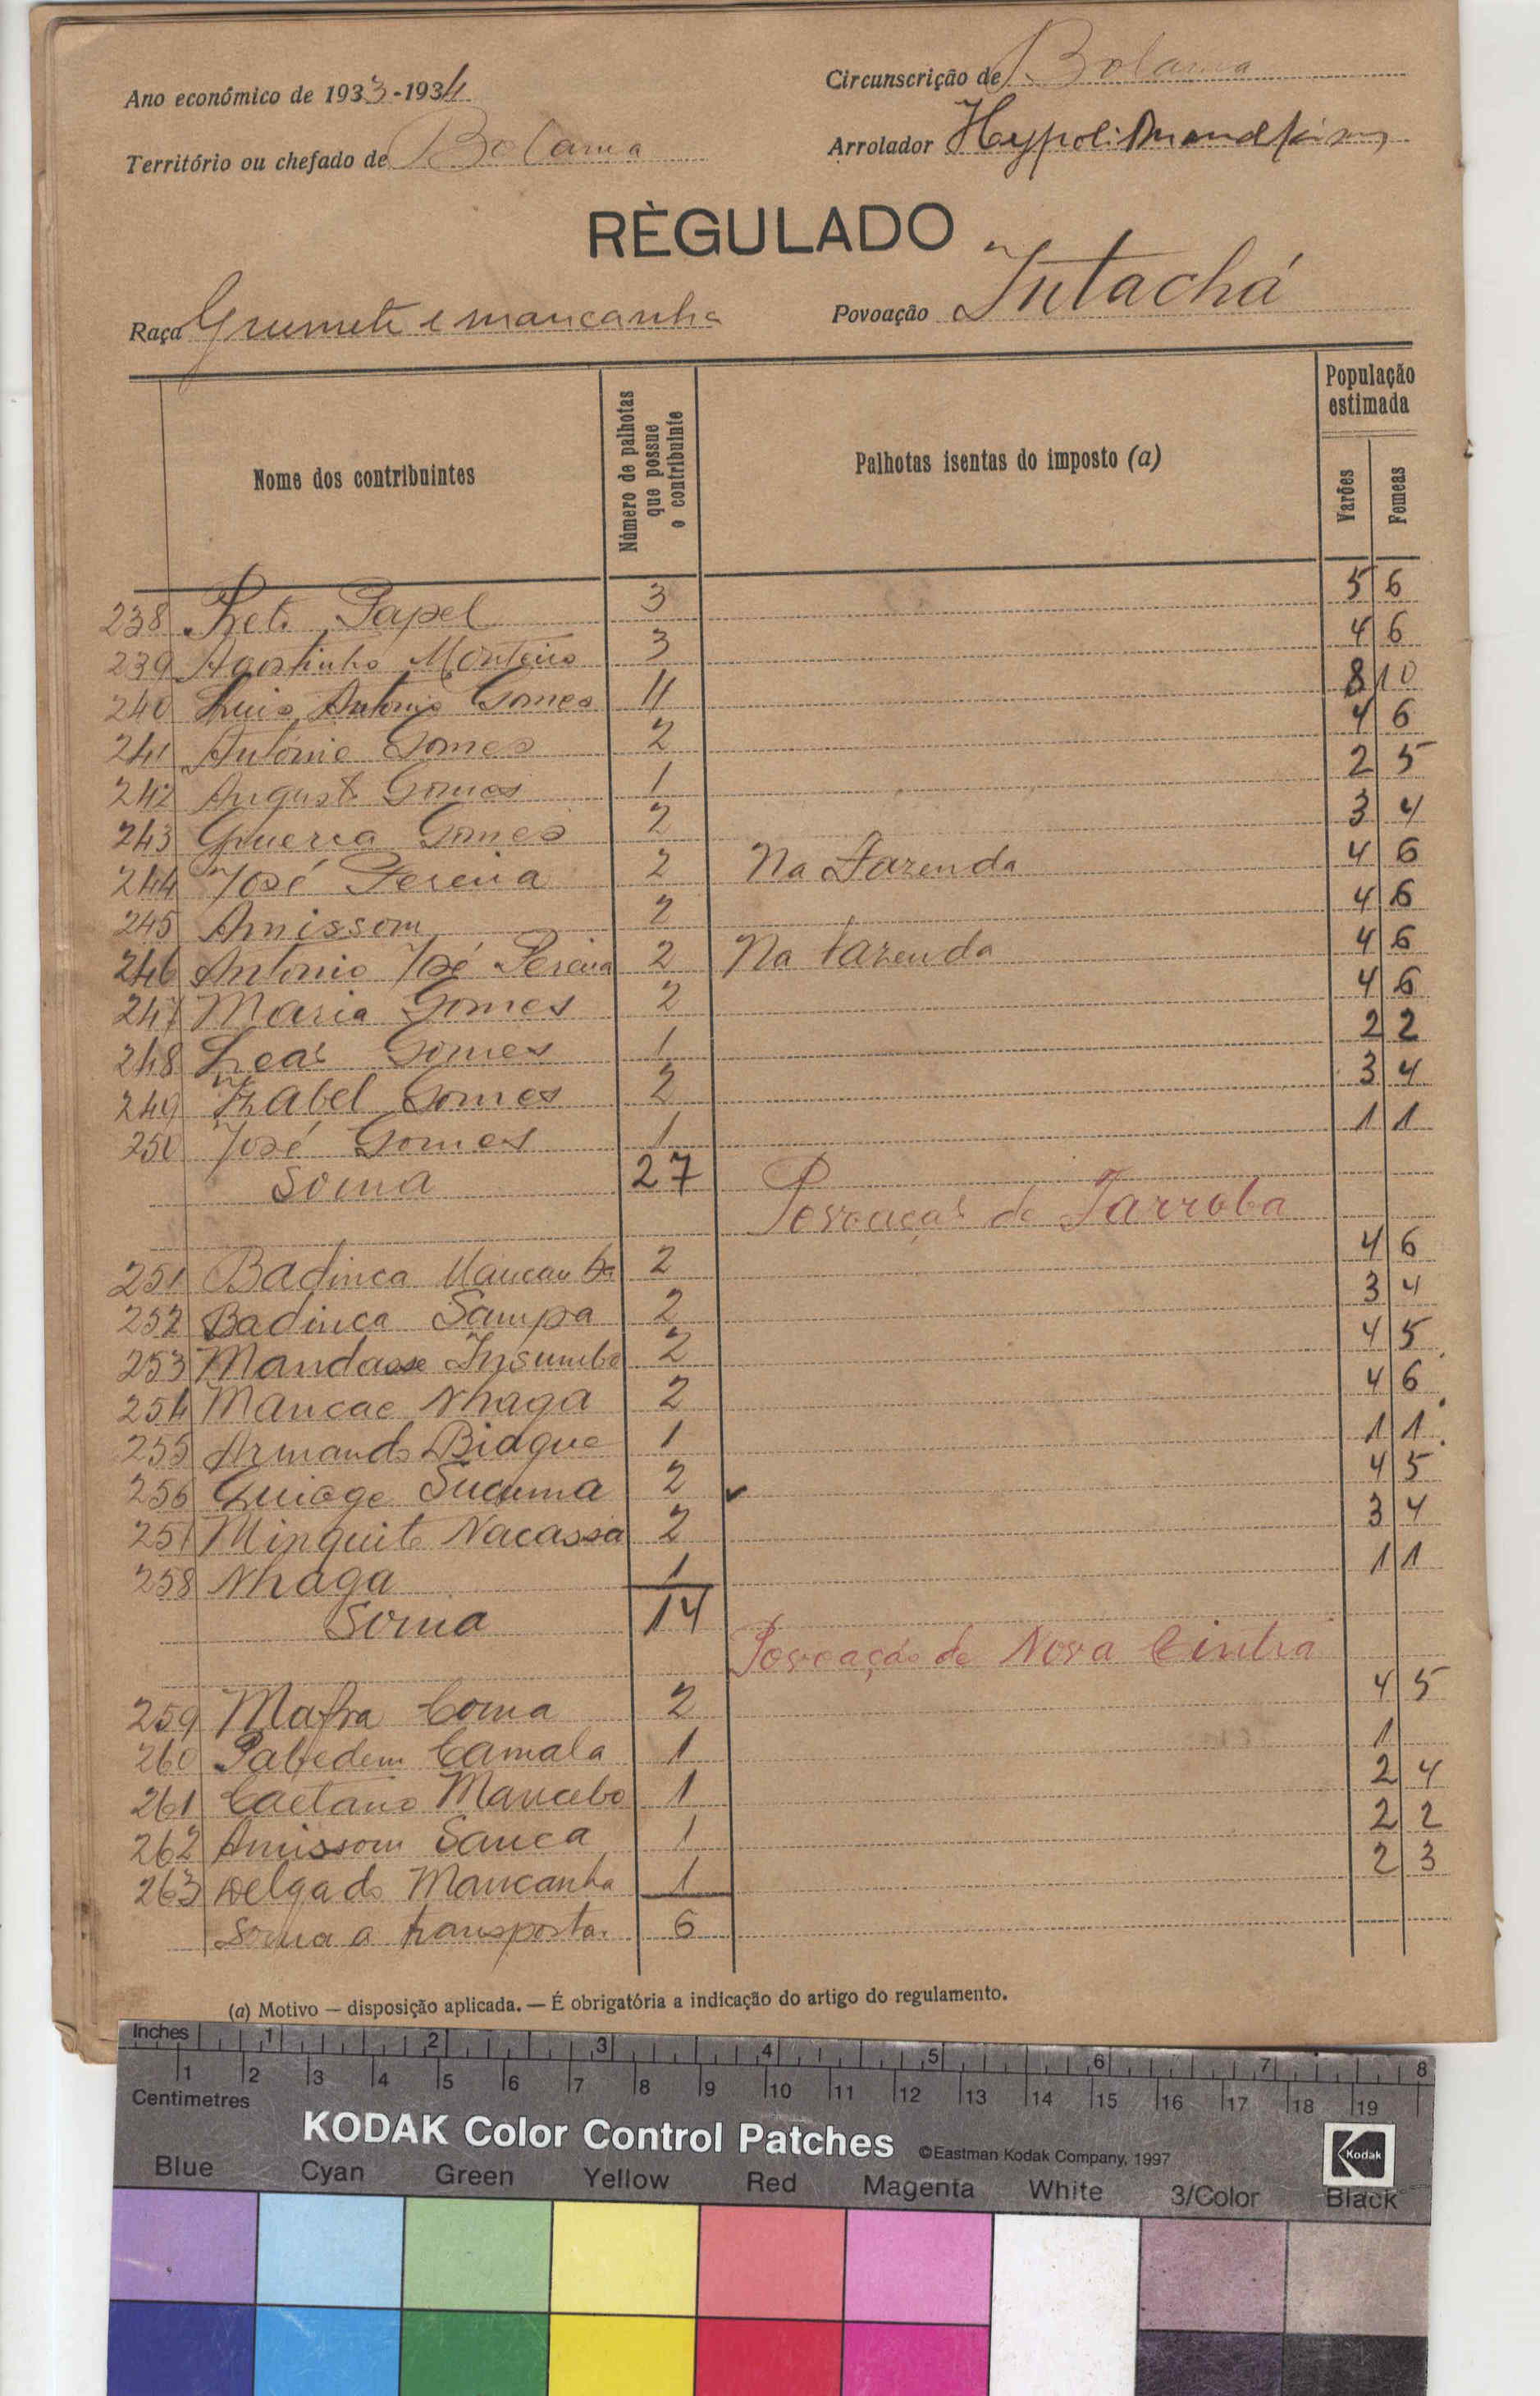 Ano económico de 1933-1934
Circunscrição de Bolama
Território ou chefado de Bolama
Arrolador
RÈGULADO
Raça Grumete e mancanha
Povoação Intachá
Nome dos contribuintes
Número de palhotas que possue o contribuinte
Palhotas isentas do imposto (a)
População estimada
Varões
Femeas
238 Preto Papel 3 5 6
239 Agostinho Monteiro 3 4 6
240 Luis Antonio Gomes 4 8 10
241 António Gomes 2 4 6
242 Augusto Gomes 1 2 5
243 Guerra Gomes 2 3 4
244 José Pereira 2 Na Fazenda 4 6
245 Anissom 2 4 6
246 Antonio José Pereira 2 Na fazenda 4 6
247 Maria Gomes 2 4 6
248 Leal Gomes 1 2 2
249 Izabel Gomes 2 3 4
250 José Gomes 1 1 1
Soma 27
Povoação de Jarroba
251 Badinca Mancanha 2 4 6
252 Badinca Sampa 2 3 4
253 Mandasse Insumbo 2 4 5
254 Mancae Nhaga 2 4 6
255 Armando Biague 1 1 1
256 Quioge Sucuma 2 4 5
257 Minguito Nacassa 2 3 4
258 Nhaga 1 1 1
Soma 14
Povoação de Nova Cintra
259 Mafra Coma 2 4 5
260 Camala 1 1
261 Caetano Mancebo 1 2 4
262 Anissom Sanca 1 2 2
263 Delgado Mancanha 1 2 3
Soma a transportar 6
(a) Motivo — disposição aplicada. — É obrigatória a indicação do artigo do regulamento.
Inches 1 2 3 4 5 6 7 8
1 2 3 4 5 6 7 8 9 10 11 12 13 14 15 16 17 18 19
Centimetres
KODAK Color Control Patches ©Eastman Kodak Company, 1997
Kodak
Blue Cyan Green Yellow Red Magenta White 3/Color Black